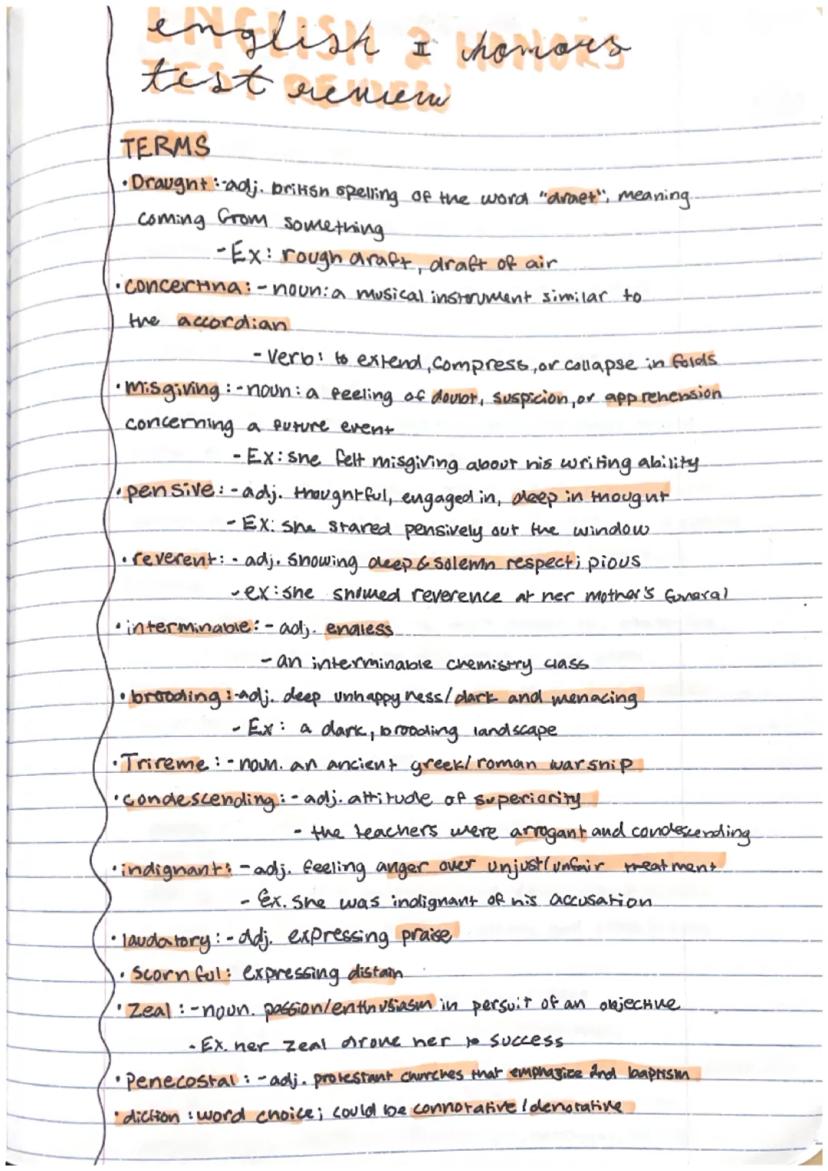 ENGLISH 2 HONORS
TEST REVIEW
english II honors
test review
TERMS
• Draught: - adj. british spelling of the word "draft", meaning
coming from something
- Ex: rough draft, draft of air
• concertina: - noun: a musical instrument similar to
the accordian
- Verb: to extend, compress, or collapse in folds
• misgiving: - noun: a feeling of doubt, suspicion, or apprehension
concerning a future event
- Ex: she felt misgiving about his writing ability
• pensive: - adj. thoughtful, engaged in, deep in thought
- Ex: she stared pensively out the window
• reverent: - adj. showing deep & solemn respect; pious
- ex: she showed reverence at her mother's funeral
• interminable: - adj. endless
- an interminable chemistry class
• brooding: - adj. deep unhappyness/dark and menacing
- Ex: a dark, brooding landscape
• Trireme: - noun. an ancient greek/roman warship
• condescending: - adj. attitude of superiority
- the teachers were arrogant and condescending
• indignant: - adj. feeling anger over unjust/unfair treatment
- Ex. She was indignant of his accusation
• laudatory: - adj. expressing praise
• Scornful: expressing distain
• Zeal: - noun. passion/enthusiasm in persuit of an objective
- Ex. her zeal drove her to success
• Penecostal: - adj. protestant churches that emphasize 2nd baptism
• diction: word choice; could be connotative/denotative